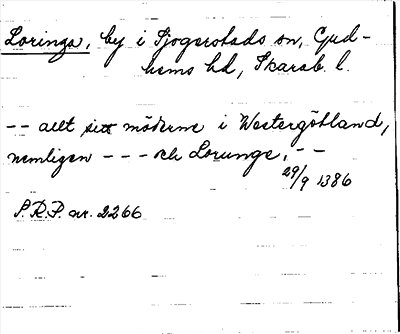 Loringa, by i Sjogerstads sn, Gud-
hems hd, Skarab. l.
-- allt sitt möderne i Westergötland,
nemligen --- och Lorunge, --
29/9 1386
S.R.P. nr. 2266